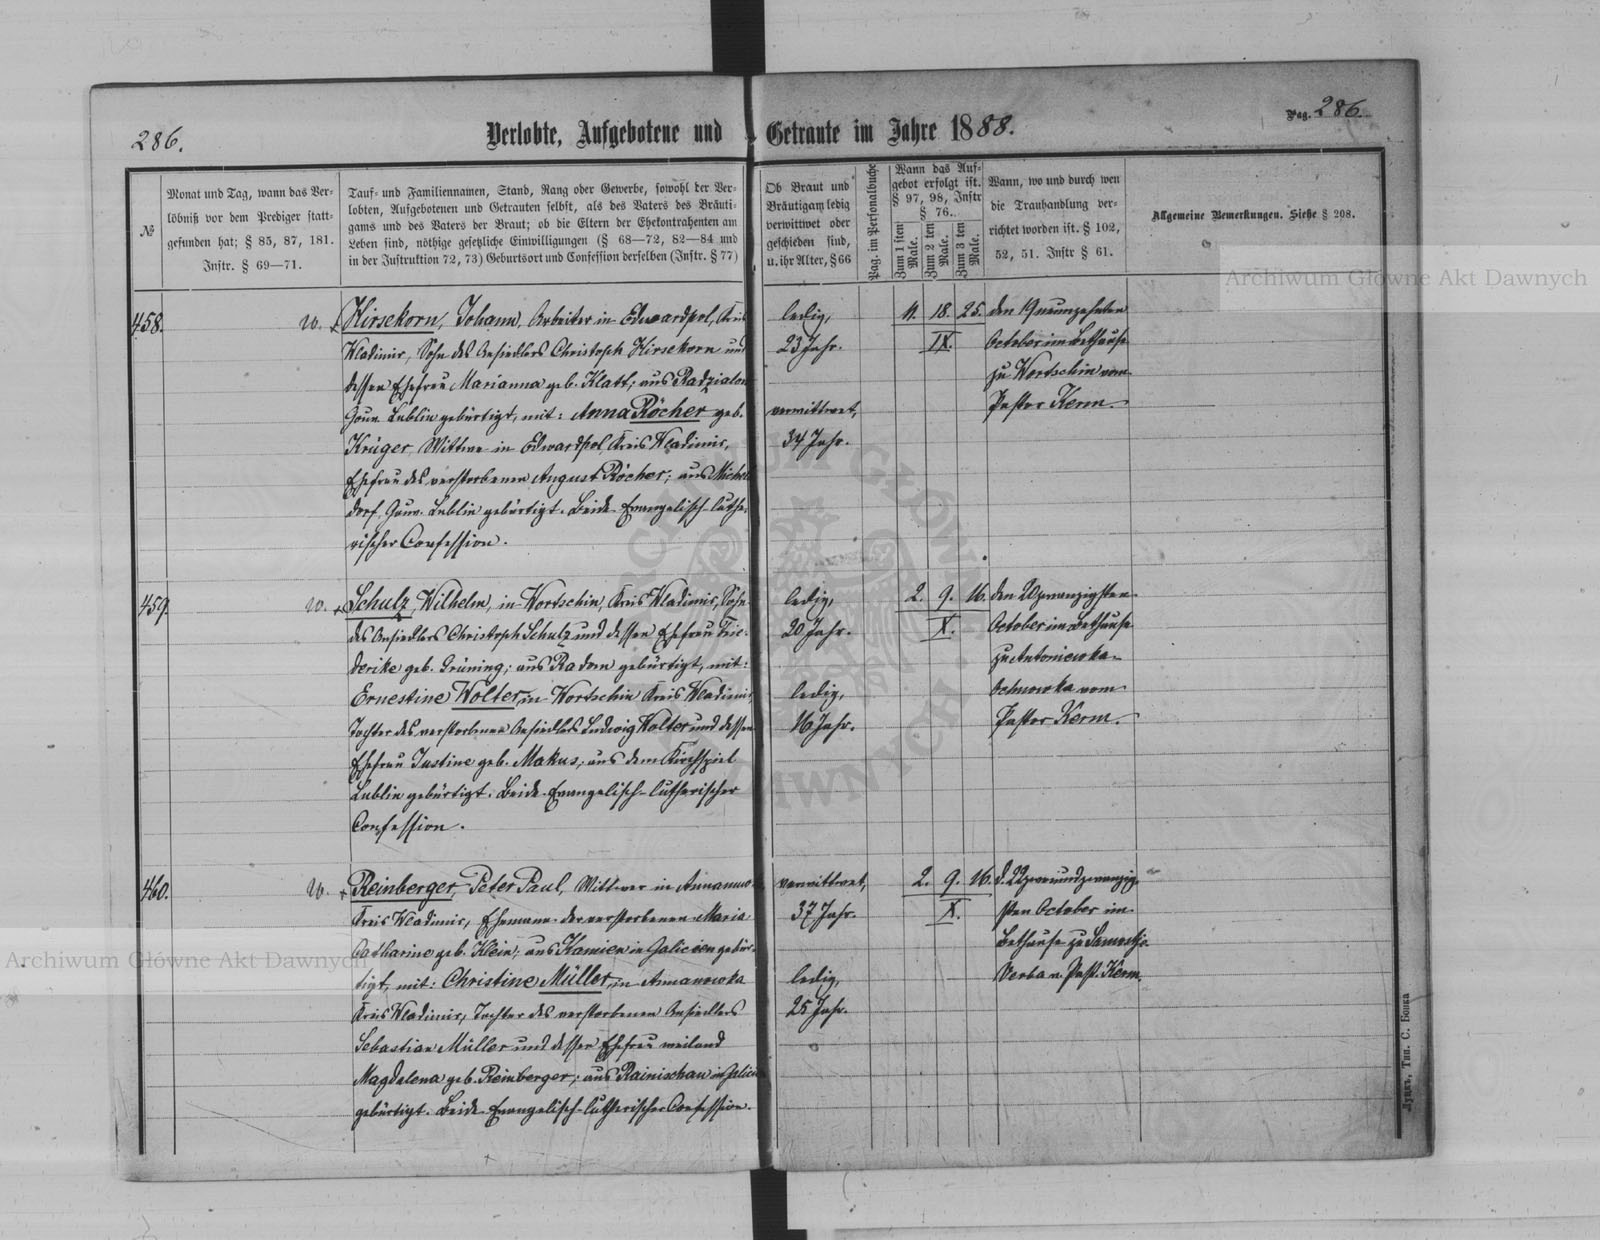 286.
Verlobte, Aufgebotene und Getraute im Jahre 1888.
Pag. 286.
№
Monat und Tag, wann das Ver-
löbniß vor dem Prediger statt-
gefunden hat; § 85, 87, 181.
Instr. § 69—71.
Tauf- und Familiennamen, Stand, Rang oder Gewerbe, sowohl der Ver-
lobten, Aufgebotenen und Getrauten selbst, als des Vaters des Bräuti-
gams und des Vaters der Braut; ob die Eltern der Ehekontrahenten am
Leben sind, nöthige gesetzliche Einwilligungen (§ 68—72, 82—84 und
in der Instruktion 72, 73) Geburtsort und Confession derselben (Instr. § 77)
Ob Braut und
Bräutigam ledig
verwittwet oder
geschieden sind,
u. ihr Alter, § 66
Pag. im Personalbuche
Wann das Auf-
gebot erfolgt ist.
§ 97, 98, Instr
§ 76.
Zum 1 sten
Male.
Zum 2 ten
Male.
Zum 3 ten
Male.
Wann, wo und durch wen
die Trauhandlung ver-
richtet worden ist. § 102,
52, 51. Instr § 61.
Allgemeine Bemerkungen. Siehe § 208.
Archiwum Główne Akt Dawnych
458.
w.
Hirsekorn, Johann, Arbeiter in Edwardpol, Kreis
Wladimir, Sohn des Ansiedlers Christoph Hirsekorn und
dessen Ehefrau Marianna geb. Klatt; aus
Gouv. Lublin gebürtigt, mit: Anna Röcher geb.
Krüger, Wittwe in Edwardpol, Kreis Wladimir,
Ehefrau des verstorbenen August Röcher; aus Michel
dorf, Gouv. Lublin gebürtigt. Beide Evangelisch-luthe-
rischer Confession.
ledig,
23 Jahr.
verwittwet,
34 Jahr.
11. 18. 25.
IX.
den 19 neunzehnten
October im Bethause
zu Wortschin vom
Pastor Kerm.
459.
w.
Schulz, Wilhelm, in Wortschin, Kreis Wladimir, Sohn
des Ansiedlers Christoph Schulz und dessen Ehefrau Frie-
derike geb. Grüning; aus Radom gebürtigt, mit:
Ernestine Wolter, in Wortschin Kreis Wladimir,
Tochter des verstorbenen Ansiedlers Ludwig Wolter und dessen
Ehefrau Justine geb. Makus; aus dem Kirchspiel
Lublin gebürtigt. Beide Evangelisch-lutherischer
Confession.
ledig,
20 Jahr.
ledig,
16 Jahr.
2. 9. 16.
X.
den 20 zwanzigsten
October im Bethause
zu Antoniewka-
vom
Pastor Kerm.
460.
w.
Reinberger, Peter Paul, Wittwer in
Kreis Wladimir, Ehemann der verstorbenen Maria
Catharine geb. Klein; aus Kamien in Galicien gebür-
tigt, mit: Christine Müller, in Annanowka
Kreis Wladimir, Tochter des verstorbenen Ansiedlers
Sebastian Müller und dessen Ehefrau weiland
Magdalena geb. Reinberger; aus Rainischau in Galicien
gebürtigt. Beide Evangelisch-lutherischer Confession.
verwittwet,
37 Jahr.
ledig,
25 Jahr.
2. 9. 16.
X.
d. 22 zweiundzwanzig-
sten October im
Bethause zu
Verba v. Past. Kerm.
Archiwum Główne Akt Dawnych
Луцкъ, Тип. С. Бонка